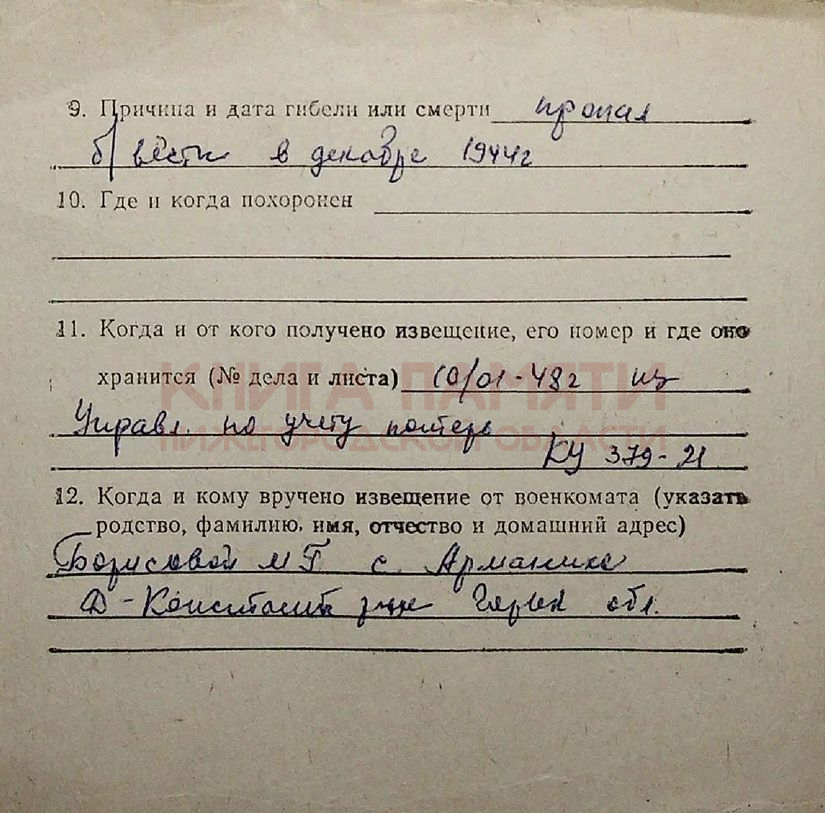 9. Причина и дата гибели или смерти пропал
б/вести в декабре 1944г
10. Где и когда похоронен
11. Когда и от кого получено извещение, его номер и где оно
хранится (№ дела и листа) 10/01-48г из
КНИГА ПАМЯТИ
Управл. по учету потерь
НИЖЕГОРОДСКОЙ ОБЛАСТИ
КУ 379-21
12. Когда и кому вручено извещение от военкомата (указать
родство, фамилию, имя, отчество и домашний адрес)
Борисовой М Г с. Арманихе
Д-Констант р-не Горьк обл.